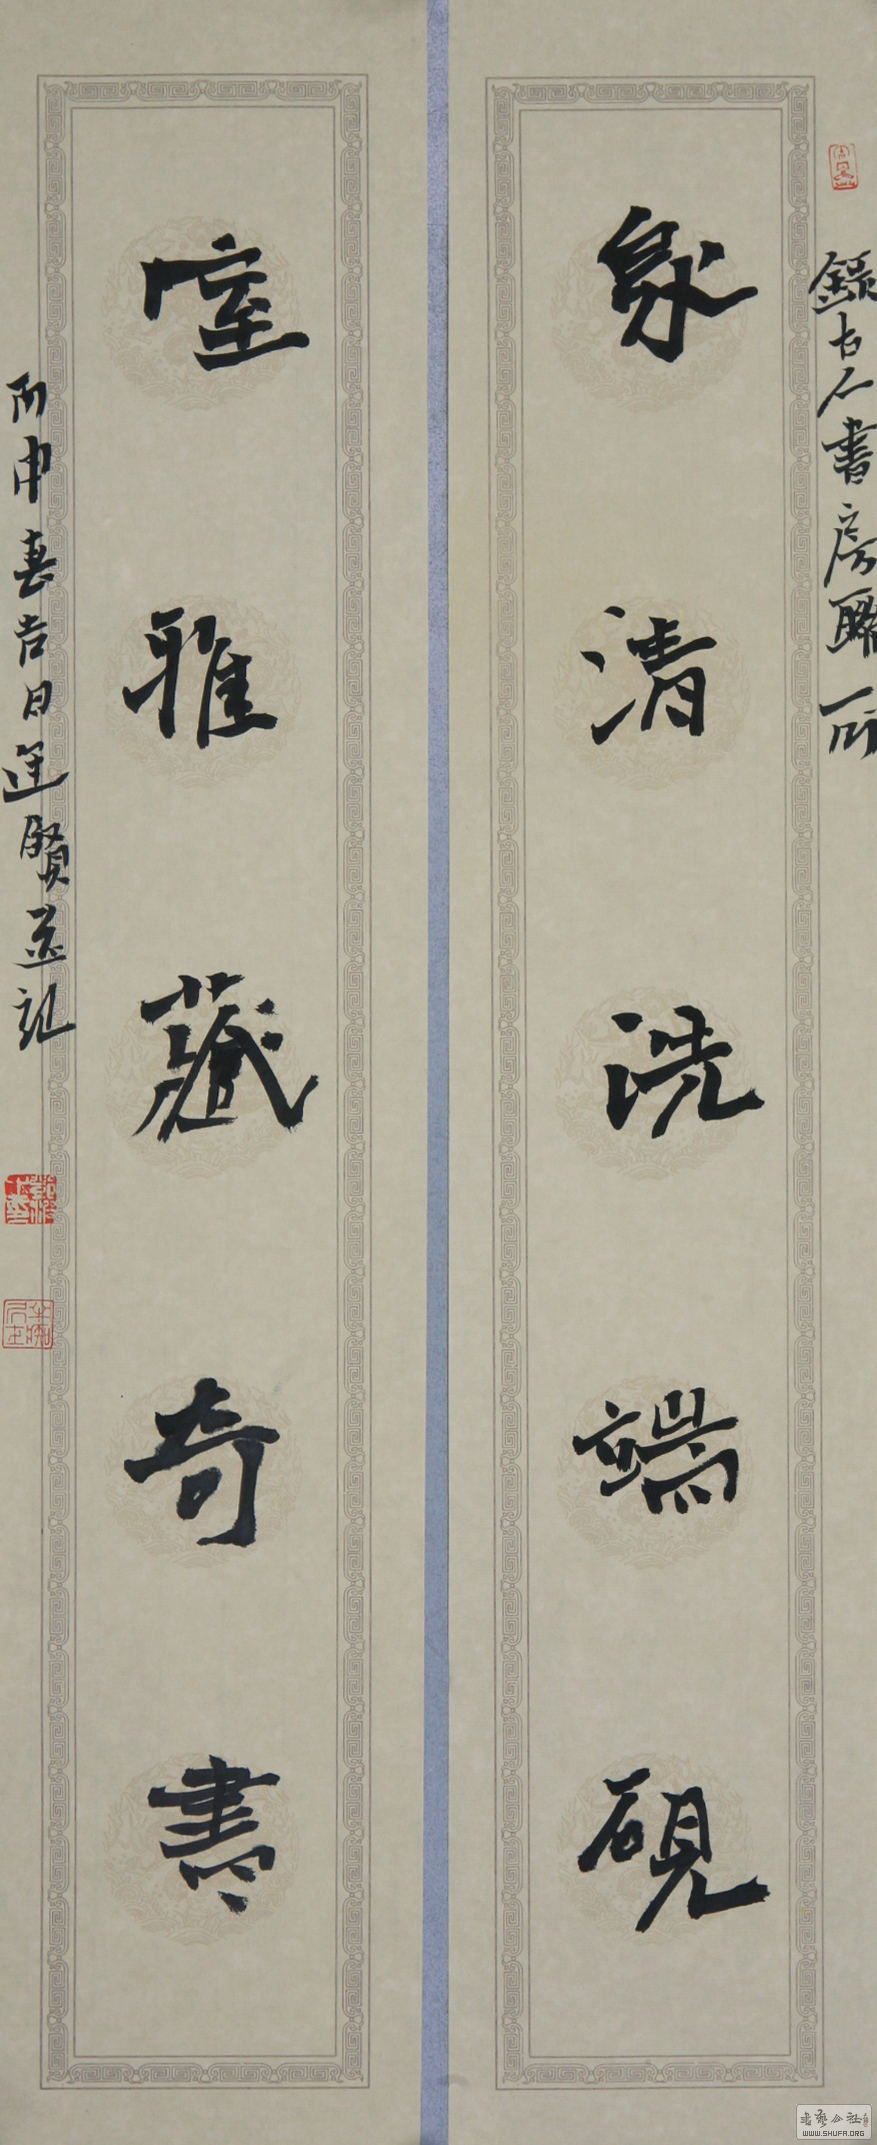 錄古人書房聯一副
泉清洗端硯
室雅藏奇書
丙申春吉日進賢並記
書藝公社
WWW.SHUFA.ORG